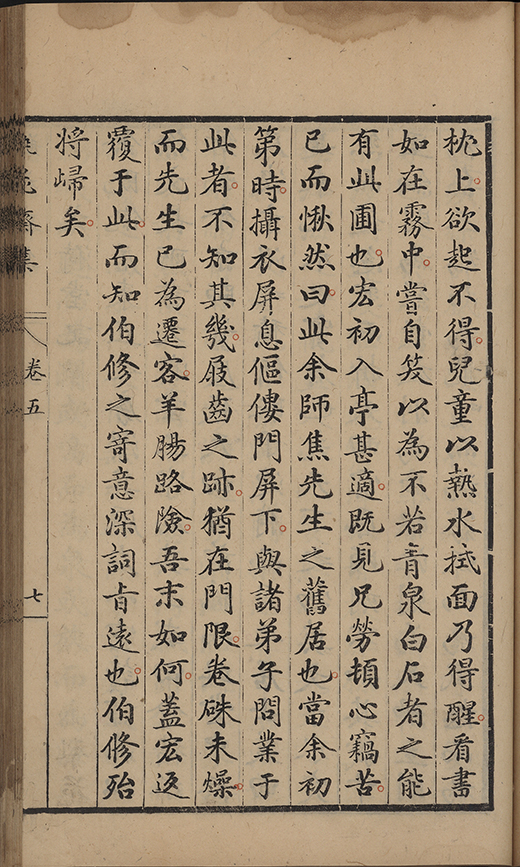 枕上欲起不得兒童以熱水拭面乃得醒看書
如在霧中嘗自笑以為不若青泉白石者之能
有此圃也宏初入亭甚適既見兄勞頓心竊苦
已而愀然曰此余師焦先生之舊居也當余初
第時攝衣屏息傴僂門屏下與諸弟子問業于
此者不知其幾屐齒之跡猶在門限卷硃未燥
而先生已為遷客羊腸路險吾末如何蓋宏返
覆于此而知伯修之寄意深詞旨遠也伯修殆
將歸矣
齋集
卷五
七